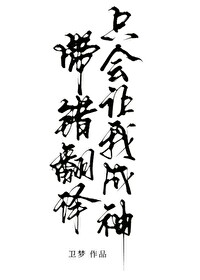 只会让我成神
佛错翻译
卫梦 作品